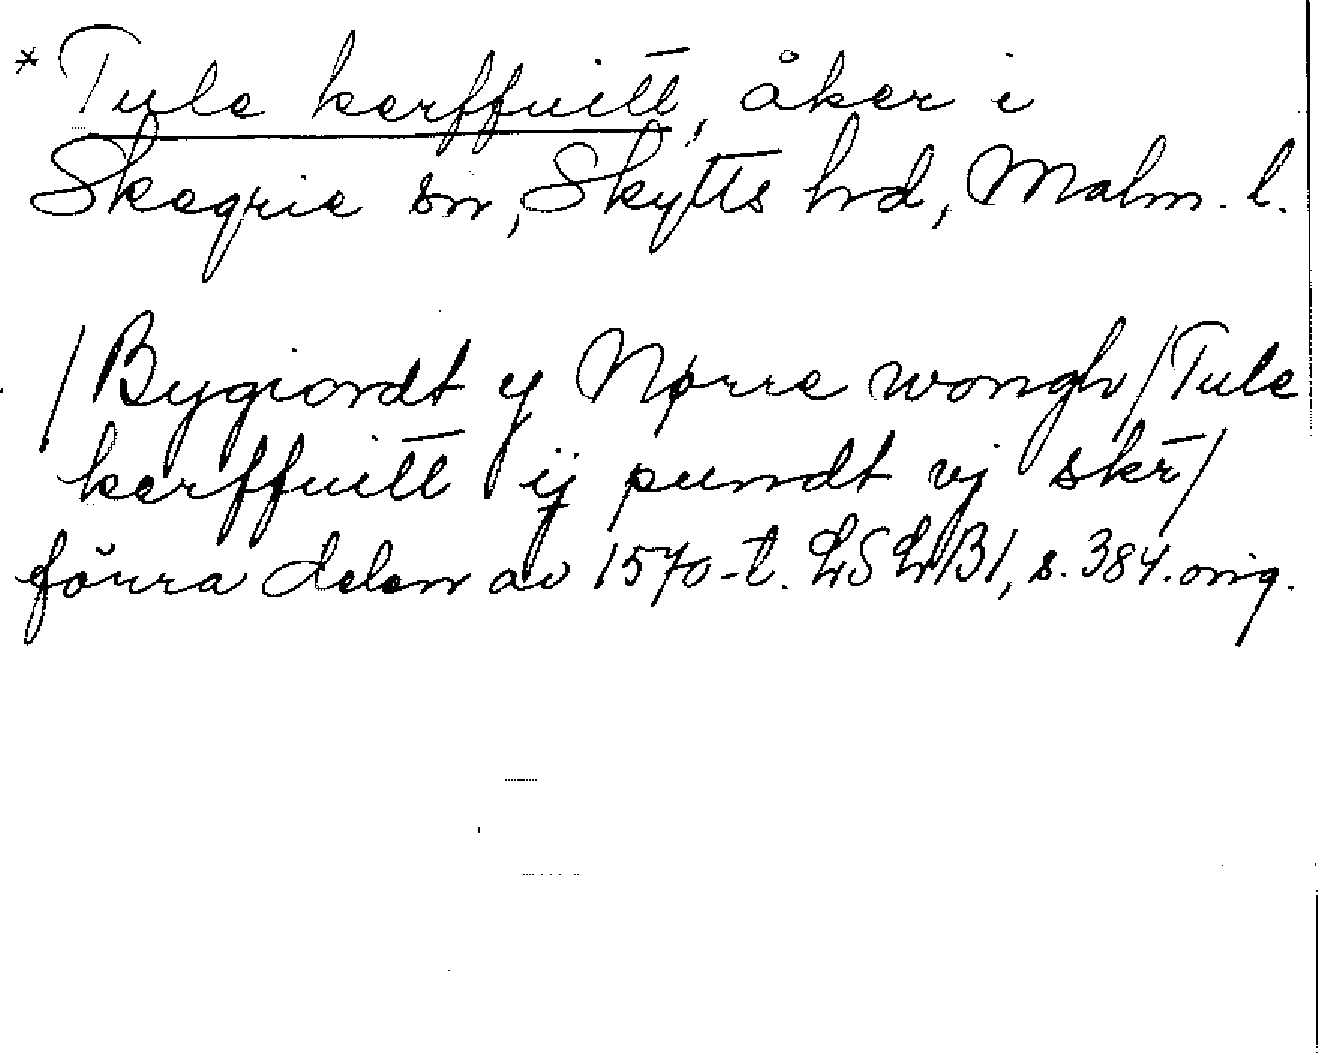 * Tule kerffuill̅, åker i
Skegrie sn, Skytts hd, Malm. l.
/Bygiordt y Nørre wongh/Tule
kerffuill̅ ij pundt vj skr̅/
förra delen av 1570-t. LSLB1, s. 384. orig.